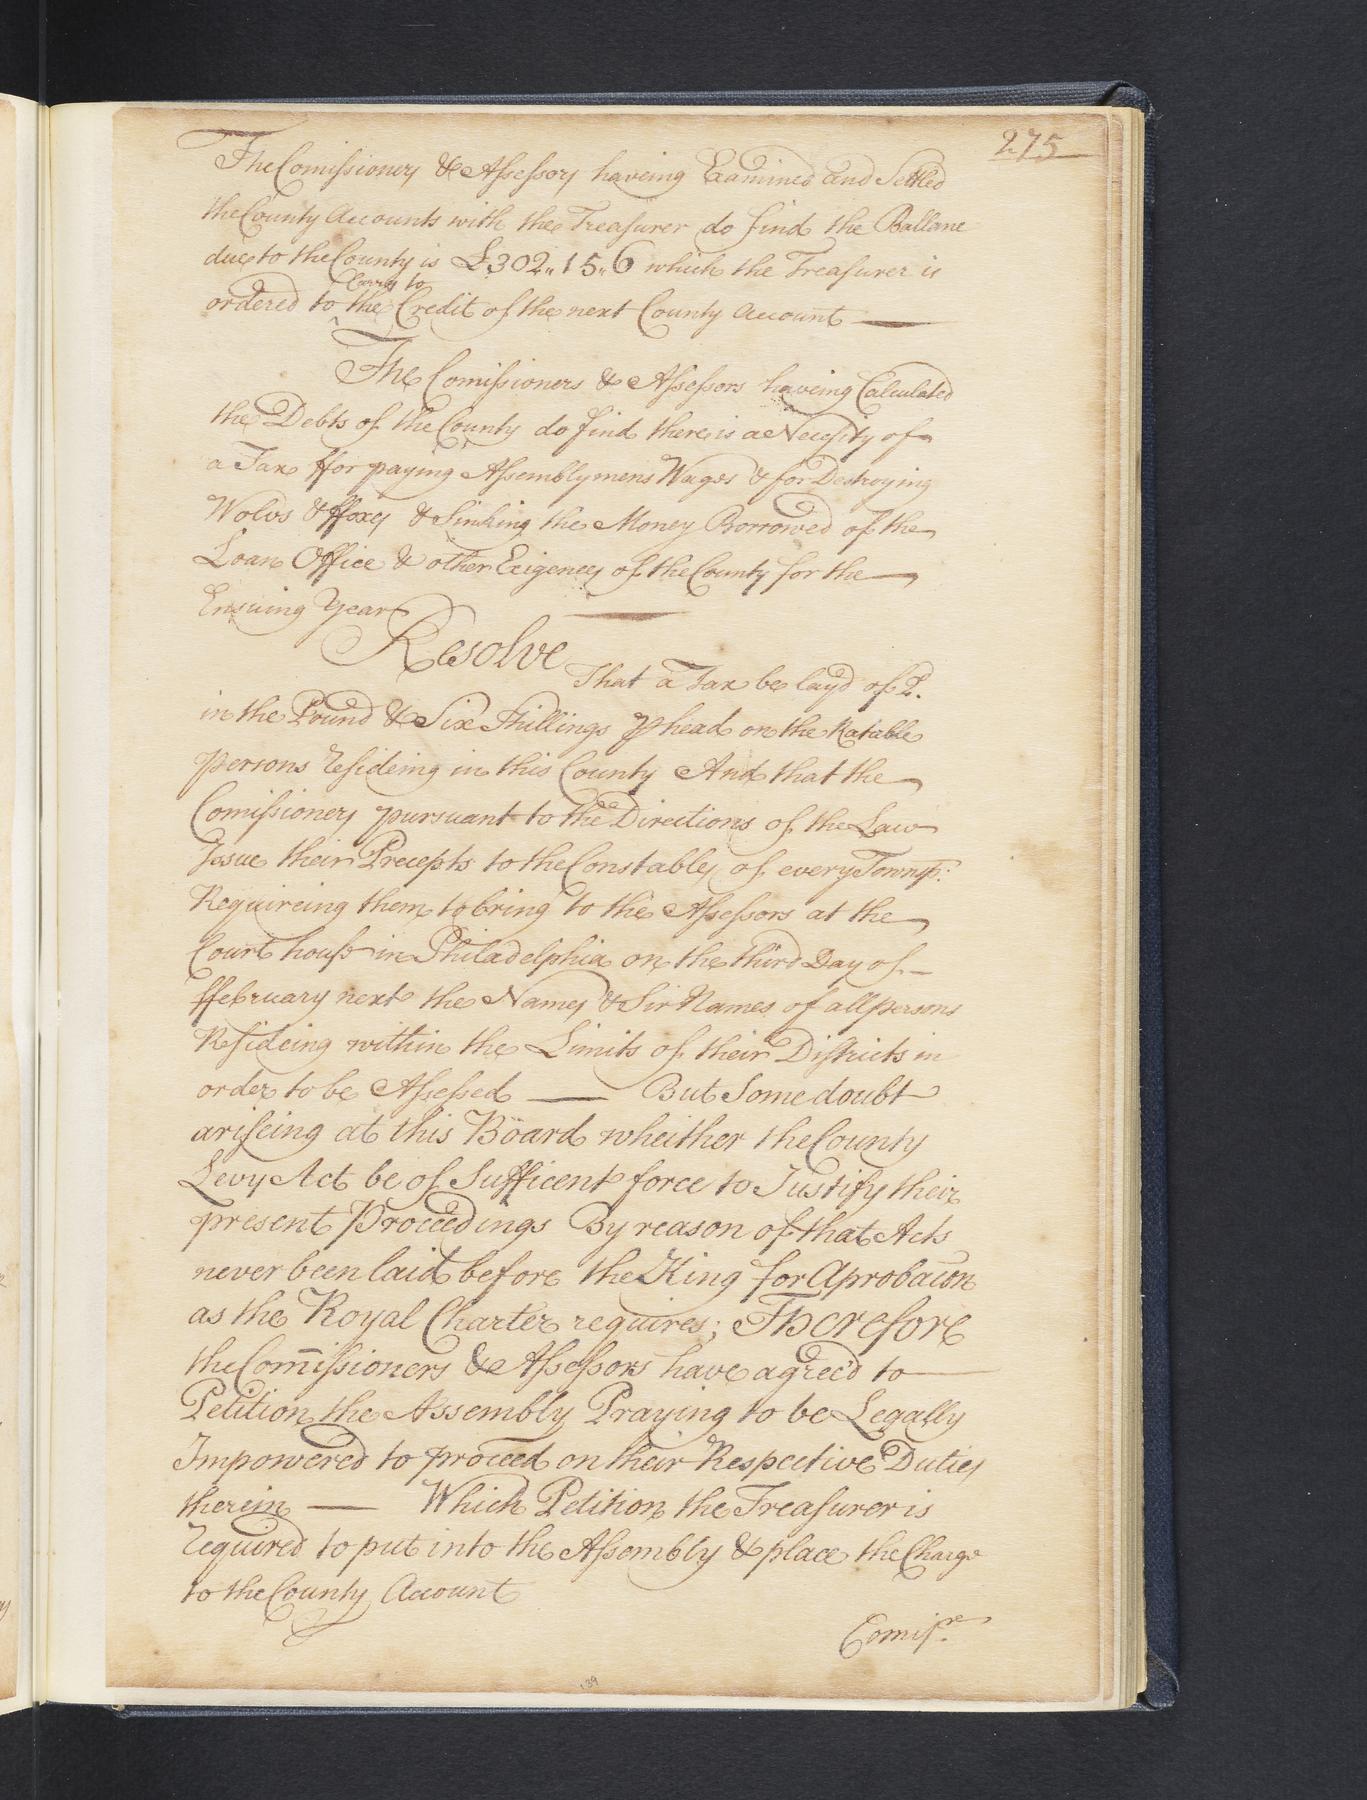 275
The Comissioners & Assessors haveing Examined and Settled
the County Accounts with the Treasurer do find the Ballane
due to the County is £302„15„6 which the Treasurer is
Carry to
ordered to ^ the Credit of the next County Account —
The Comissioners & Assessors haveing Calculated
the Debts of the County do find there is a Necesity of
a Tax ffor paying Assemblymens Wages & for Destroying
Wolvs & ffoxes & Sinking the Money Borrowed of the
Loan Office & other Exigences of the County for the —
Ensuing Year —
Resolve
That a Tax be lay'd of 2d.
in the Pound & Six Shillings ⅌ head on the Ratable
persons resideing in this County And that the
Comissioners pursuant to the Directions of the Law
Issue their Precepts to the Constables of every Townsp:
Requireing them to bring to the Assessors at the
Court house in Philadelphia on the third Day of —
ffebruary next the Names & Sir Names of all persons
Resideing within the Limits of their Districts in
order to be Assessed — But Some doubt
ariseing at this Board wheither the County
Levy Act be of Sufficent force to Justify their
present Proceedings By reason of that Acts
never been laid before the King for Aprobacon
as the Royal Charter requires; Therefore
the Com̄issioners & Assessors have agreed to —
Petition the Assembly Praying to be Legally
Impowered to proceed on their Respective Duties
therein — Which Petition the Treasurer is
required to put into the Assembly & place the Charge
to the County Account
Comisre.
139